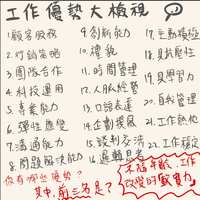 工作優勢大檢視
1.顧客服務
2.行銷策略
3.團隊合作
4.科技運用
5.專業能力
6.彈性應變
7.溝通能力
8.問題解決能力
9.創新能力
10.禮貌
11.時間管理
12.人脈經營
13.口語表達
14.企劃撰展
15.談判交涉
16.邏輯思考
17.主動積極
18.具幽默性
19.具學習力
20.自我管理
21.工作熱忱
22.工作穩定
你有哪些優勢?
其中,前三名是?
不論年齡,工作
改變的戰實力